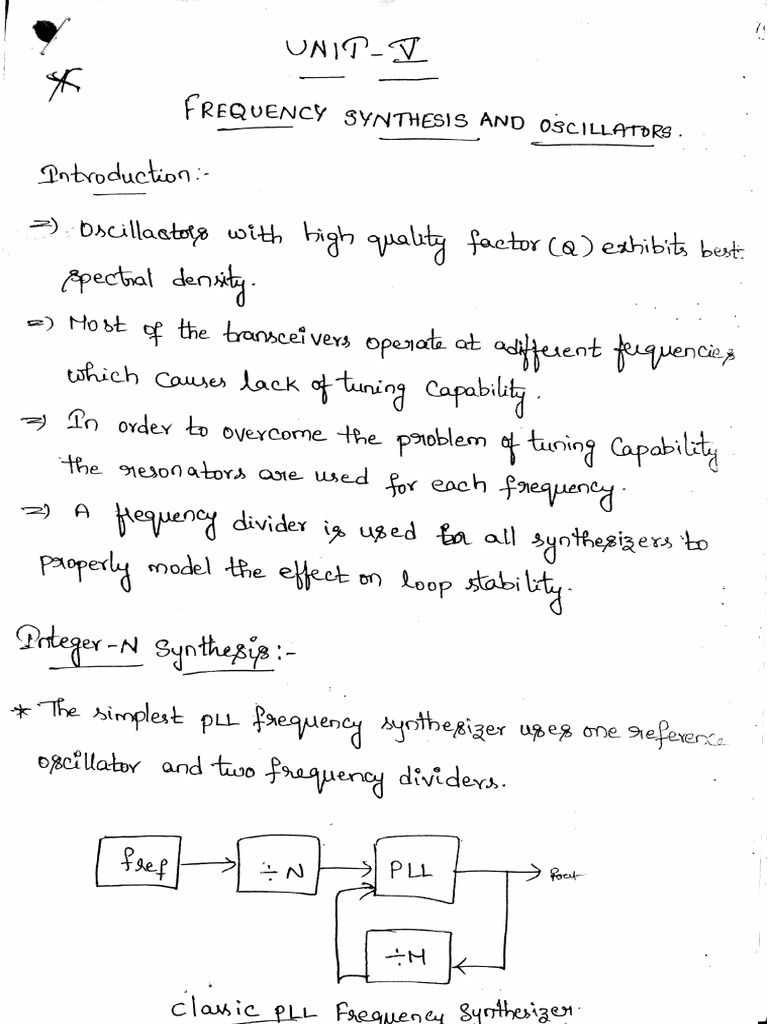 UNIT-V
FREQUENCY SYNTHESIS AND OSCILLATORS.
Introduction:-
=> Oscillactors with high quality factor (Q) exhibits best
spectral density.
=> Most of the transceivers operate at adifferent ferquencies
which causes lack of tuning capability.
=> In order to overcome the problem of tuning Capability
the resonators are used for each frequency.
=> A frequency divider is used for all synthesizers to
properly model the effect on loop stability.
Integer-N Synthesis:-
* The simplest PLL frequency synthesizer uses one reference
oscillator and two frequency dividers.
fref ÷N PLL fout
÷M
Classic PLL Frequency Synthesizer.